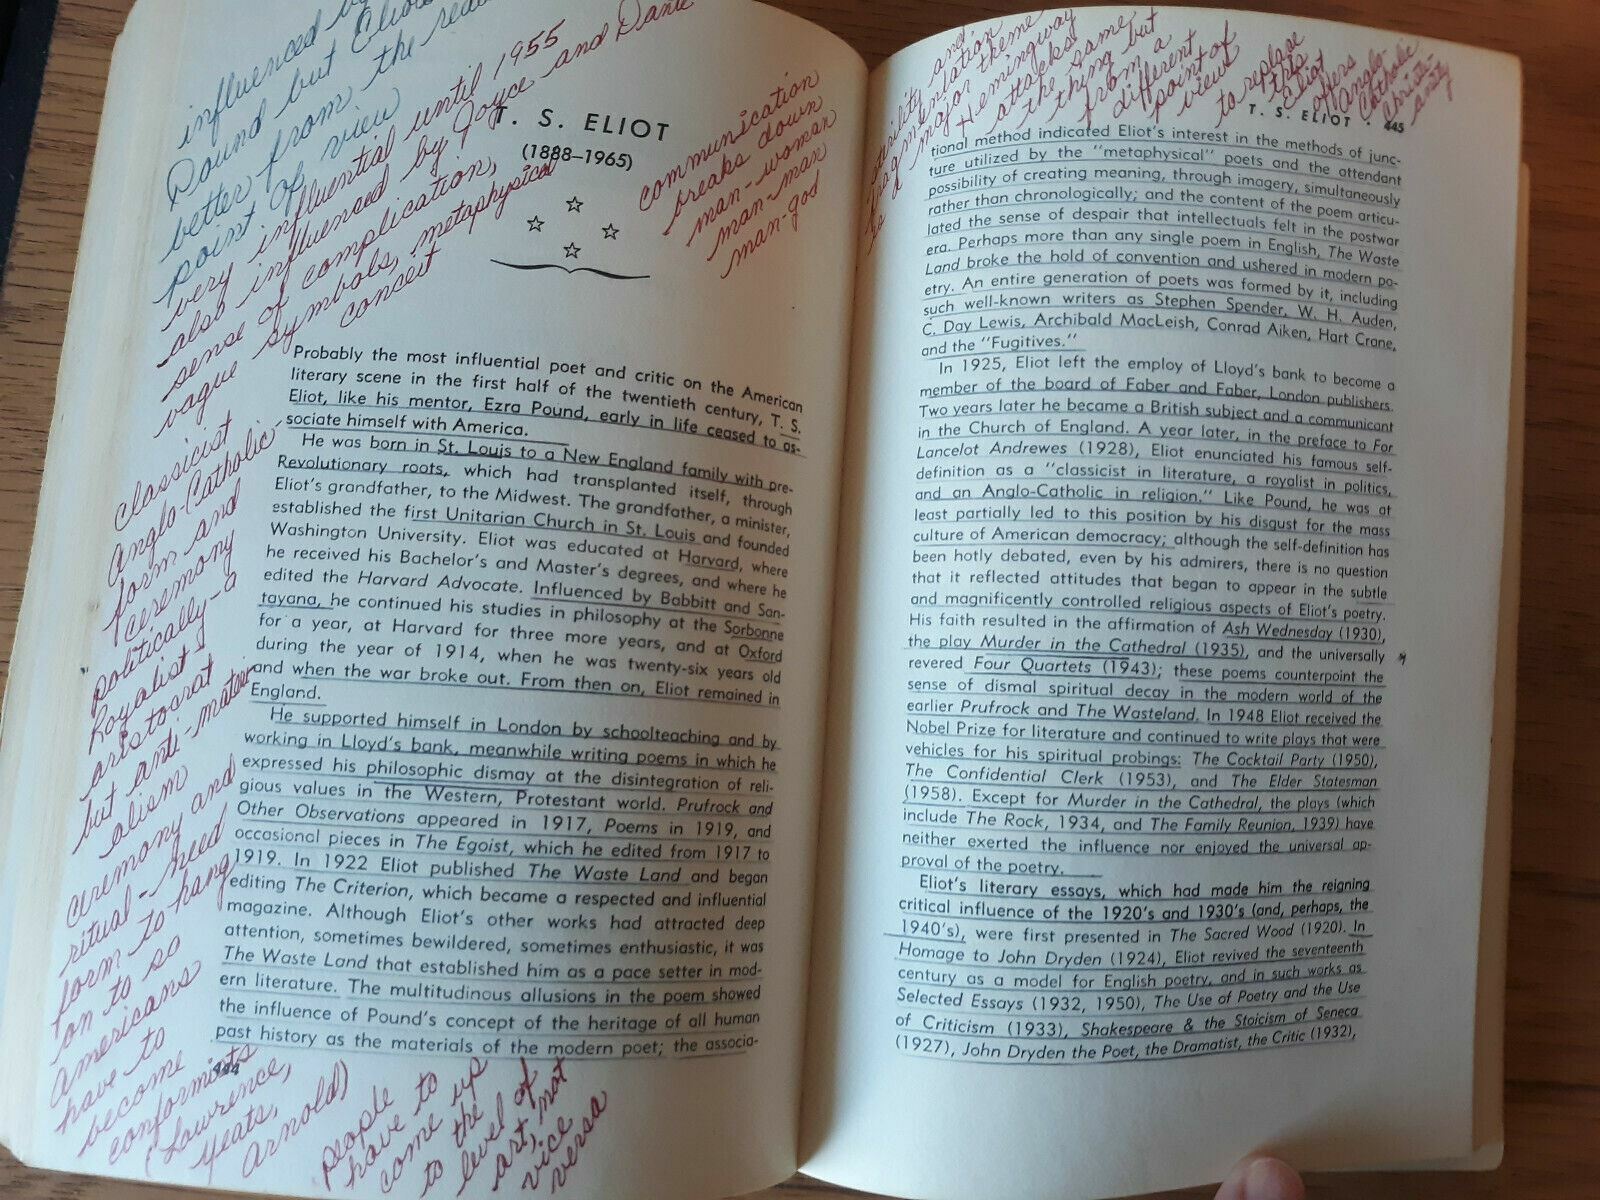 influenced by
Pound but Eliot
better from the
point of view
very influential until 1955
also influenced by Joyce and Dante
sense of complication,
vague symbols, metaphysical
conceit
communication
breaks down
man-woman
man-man
man-god
T. S. ELIOT
(1888–1965)
Probably the most influential poet and critic on the American
literary scene in the first half of the twentieth century, T. S.
Eliot, like his mentor, Ezra Pound, early in life ceased to as-
sociate himself with America.
He was born in St. Louis to a New England family with pre-
Revolutionary roots, which had transplanted itself, through
Eliot's grandfather, to the Midwest. The grandfather, a minister,
established the first Unitarian Church in St. Louis and founded
Washington University. Eliot was educated at Harvard, where
he received his Bachelor's and Master's degrees, and where he
edited the Harvard Advocate. Influenced by Babbitt and San-
tayana, he continued his studies in philosophy at the Sorbonne
for a year, at Harvard for three more years, and at Oxford
during the year of 1914, when he was twenty-six years old
and when the war broke out. From then on, Eliot remained in
England.
He supported himself in London by schoolteaching and by
working in Lloyd's bank, meanwhile writing poems in which he
expressed his philosophic dismay at the disintegration of reli-
gious values in the Western, Protestant world. Prufrock and
Other Observations appeared in 1917, Poems in 1919, and
occasional pieces in The Egoist, which he edited from 1917 to
1919. In 1922 Eliot published The Waste Land and began
editing The Criterion, which became a respected and influential
magazine. Although Eliot's other works had attracted deep
attention, sometimes bewildered, sometimes enthusiastic, it was
The Waste Land that established him as a pace setter in mod-
ern literature. The multitudinous allusions in the poem showed
the influence of Pound's concept of the heritage of all human
past history as the materials of the modern poet; the associa-
444
classicist
Anglo-Catholic-
form and
ceremony
politically-a
Royalist
aristocrat
but anti-materi-
alism
ceremony and
ritual-need
form-to hang
on to so
Americans
have to
become
conformists
(Lawrence,
Yeats,
Arnold)
people
have to
come up
to the
level of
art, not
vice
versa
sterility and
fragmentation
is a major theme
Hemingway
attacks
the same
thing but
from a
different
point of
view
to replace
this
Eliot
offers
Anglo-
Catholic
Christi-
anity
T. S. ELIOT · 445
tional method indicated Eliot's interest in the methods of junc-
ture utilized by the "metaphysical" poets and the attendant
possibility of creating meaning, through imagery, simultaneously
rather than chronologically; and the content of the poem articu-
lated the sense of despair that intellectuals felt in the postwar
era. Perhaps more than any single poem in English, The Waste
Land broke the hold of convention and ushered in modern po-
etry. An entire generation of poets was formed by it, including
such well-known writers as Stephen Spender, W. H. Auden,
C. Day Lewis, Archibald MacLeish, Conrad Aiken, Hart Crane,
and the "Fugitives."
In 1925, Eliot left the employ of Lloyd's bank to become a
member of the board of Faber and Faber, London publishers.
Two years later he became a British subject and a communicant
in the Church of England. A year later, in the preface to For
Lancelot Andrewes (1928), Eliot enunciated his famous self-
definition as a "classicist in literature, a royalist in politics,
and an Anglo-Catholic in religion." Like Pound, he was at
least partially led to this position by his disgust for the mass
culture of American democracy; although the self-definition has
been hotly debated, even by his admirers, there is no question
that it reflected attitudes that began to appear in the subtle
and magnificently controlled religious aspects of Eliot's poetry.
His faith resulted in the affirmation of Ash Wednesday (1930),
the play Murder in the Cathedral (1935), and the universally
revered Four Quartets (1943); these poems counterpoint the
sense of dismal spiritual decay in the modern world of the
earlier Prufrock and The Wasteland. In 1948 Eliot received the
Nobel Prize for literature and continued to write plays that were
vehicles for his spiritual probings: The Cocktail Party (1950),
The Confidential Clerk (1953), and The Elder Statesman
(1958). Except for Murder in the Cathedral, the plays (which
include The Rock, 1934, and The Family Reunion, 1939) have
neither exerted the influence nor enjoyed the universal ap-
proval of the poetry.
Eliot's literary essays, which had made him the reigning
critical influence of the 1920's and 1930's (and, perhaps, the
1940's), were first presented in The Sacred Wood (1920). In
Homage to John Dryden (1924), Eliot revived the seventeenth
century as a model for English poetry, and in such works as
Selected Essays (1932, 1950), The Use of Poetry and the Use
of Criticism (1933), Shakespeare & the Stoicism of Seneca
(1927), John Dryden the Poet, the Dramatist, the Critic (1932),